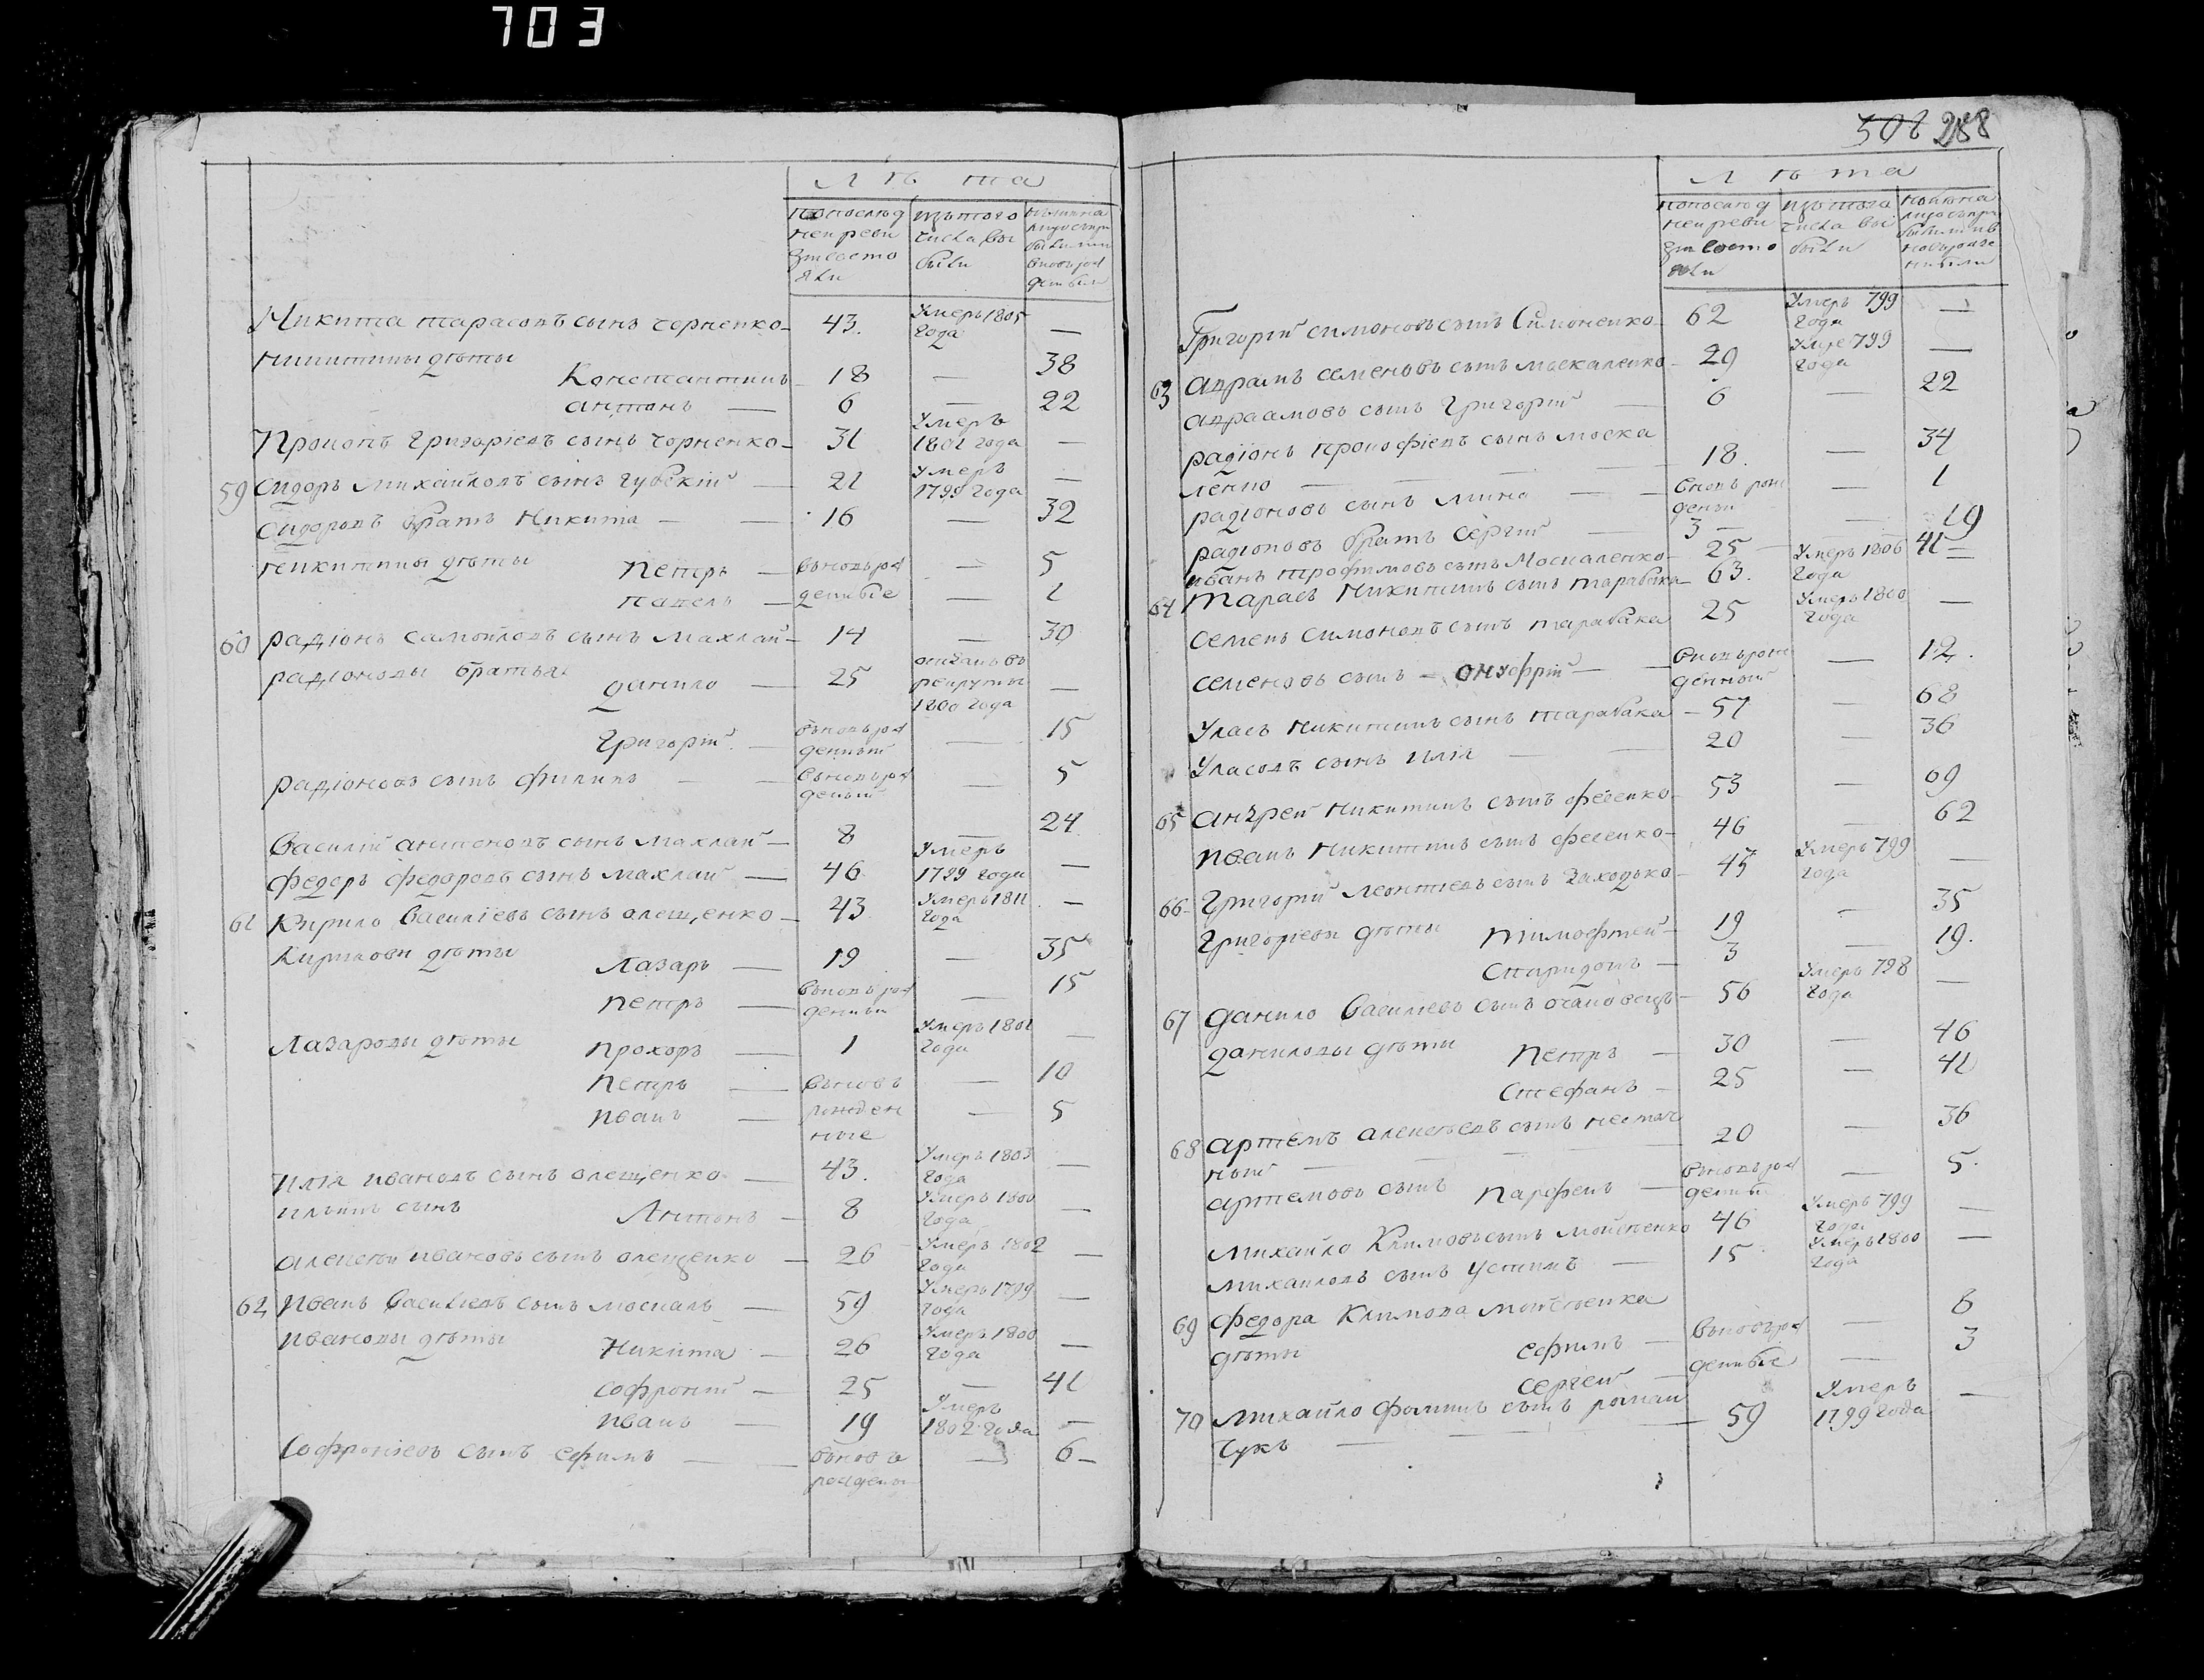 703
Лѣта
попослѣд
ней реви
зіи состо
яли
изътого
числа вы
были
Никита тарасовъ сынъ Чорненко 43. Умеръ 1805 года —
никитины дѣты
Константинъ 18 — 38
антонъ — 6 — 22
Прокопъ григоріевъ сынъ чорненко 31 Умеръ 1801 года —
59 Сидоръ михайловъ сынъ губскій — 21 Умеръ 1799 года —
Сидоровъ братъ Никита — 16 — 32
никитины дѣты Петръ — вьновьрож — 5
павелъ — денные — 1
60 радіонъ самойловъ сынъ махлай 14 — 30
радіоновы братья
данило — 25 отданъ въ рекруты 1800 года —
григорій — вьновьрож денный — 15
радіоновъ сынъ филипъ — вьновьрож деный — 5
василій антоновъ сынъ махлай — 8 — 24
федоръ федоровъ сынъ махлай — 46 Умеръ 1799 года —
61 Кирило василіевъ сынъ олещенко 43 Умеръ 1811 года —
Кириловы дѣты
Лазаръ — 19 — 35
петръ — вьновьрож денный — 15
Лазаровы дѣты прохоръ — 1 Умеръ 1801 года —
петръ — вьновь — 10
иванъ — рожден — 5
ные
илія ивановъ сынъ олещенко — 43. Умеръ 1803 года —
ильинъ сынъ Антонъ — 8 Умеръ 1800 года —
алексѣй ивановъ сынъ олещенко — 26 Умеръ 1802 года —
62 иванъ василіевъ сынъ москаль — 59 Умеръ 1799 года —
ивановы дѣты
Никита — 26 Умеръ 1800 года —
софроній — 25 — 41
иванъ — 19 Умеръ 1802 года —
Софроніевъ сынъ ефимъ — вьновь рожденый — 6
308 288
Лѣта
попослѣд
ней реви
зіи состо
яли
изътого
числа вы
были
Григорій симоновъ сынъ Симоненко 62 Умеръ 799 года —
63 авраамъ семеновъ сынъ москаленко 29 Умре 799 года —
авраамовъ сынъ григорій — 6 — 22
радіонъ прокофіевъ сынъ моска
ленко — 18. — 34
радіоновъ сынъ мина — вновь рож денный — 1
радіоновъ братъ сергій — 3 — 19
иванъ трофимовъ сынъ москаленко 25 — 41
64 тарасъ никитинъ сынъ тарабака 63. Умеръ 1806 года —
семенъ симоновъ сынъ тарабака 25 Умеръ 1800 года —
семеновъ сынъ — онуфрій — вновьрож денный — 12.
Уласъ никитинъ сынъ тарабака 51 — 68
Уласовъ сынъ илія — 20 — 36
65 андрей никитинъ сынъ фесенко 53 — 69
иванъ никитинъ сынъ фесенко 46 — 62
66 григорій леонтіевъ сынъ заходько 45 Умеръ 799 года —
григоріевы дѣты тимофтей 19 — 35
спиридонъ — 3 — 19.
67 данило василіевъ сынъ очаковецъ 56 Умеръ 798 года —
даниловы дѣты петръ — 30 — 46
стефанъ — 25 — 41
68 артемъ алексѣевъ сынъ
ный — 20 — 36
артемовъ сынъ парфенъ — вьновьрож денный — 5.
михайло климовъ сынъ мойсеенко 46 Умеръ 799 года —
михайловъ сынъ устинъ — 15 Умеръ 1800 года —
69 федора климова мойсеенка
дѣты ефимъ — вьновьрож — 6
сергей — денные — 3
70 михайло фоминъ сынъ роман
чукъ — 59 Умеръ 1799 года —